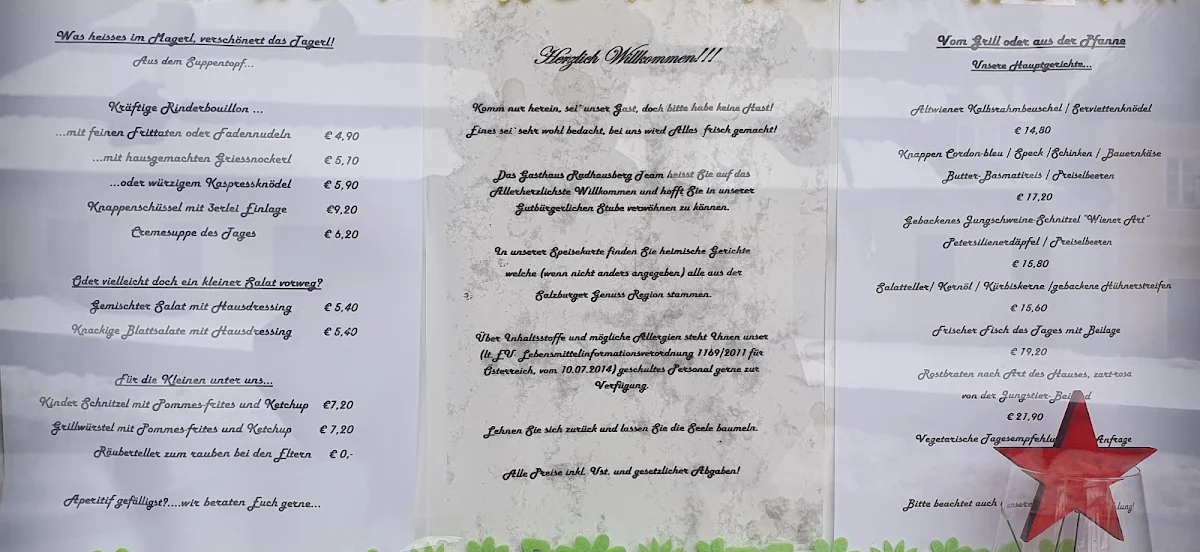 Was heisses im Magerl, verschönert das Tagerl!
Aus dem Suppentopf...
Kräftige Rinderbouillon ...
...mit feinen Frittaten oder Fadennudeln € 4,90
...mit hausgemachten Griessnockerl € 5,10
...oder würzigem Kaspressknödel € 5,90
Knappenschüssel mit 3erlei Einlage €9,20
Cremesuppe des Tages € 6,20
Oder vielleicht doch ein kleiner Salat vorweg?
Gemischter Salat mit Hausdressing € 5,40
Knackige Blattsalate mit Hausdressing € 5,40
Für die Kleinen unter uns...
Kinder Schnitzel mit Pommes-frites und Ketchup €7,20
Grillwürstel mit Pommes-frites und Ketchup € 7,20
Räuberteller zum rauben bei den Eltern € 0,-
Aperitif gefälligst?....wir beraten Euch gerne...
Herzlich Willkommen!!!
Komm nur herein, sei` unser Gast, doch bitte habe keine Hast!
Eines sei` sehr wohl bedacht, bei uns wird Alles frisch gemacht!
Das Gasthaus Radhausberg Team heisst Sie auf das
Allerherzlichste Willkommen und hofft Sie in unserer
Gutbürgerlichen Stube verwöhnen zu können.
In unserer Speisekarte finden Sie heimische Gerichte
welche (wenn nicht anders angegeben) alle aus der
Salzburger Genuss Region stammen.
Über Inhaltsstoffe und mögliche Allergien steht Ihnen unser
(lt. EU- Lebensmittelinformationsverordnung 1169/2011 für
Österreich, vom 10.07.2014) geschultes Personal gerne zur
Verfügung.
Lehnen Sie sich zurück und lassen Sie die Seele baumeln.
Alle Preise inkl. Ust. und gesetzlicher Abgaben!
Vom Grill oder aus der Pfanne
Unsere Hauptgerichte...
Altwiener Kalbsrahmbeuschel / Serviettenknödel
€ 14,80
Knappen Cordon-bleu / Speck /Schinken / Bauernkäse
Butter-Basmatireis / Preiselbeeren
€ 17,20
Gebackenes Jungschweine-Schnitzel "Wiener Art"
Petersilienerdäpfel / Preiselbeeren
€ 15,80
Salatteller/ Kernöl / Kürbiskerne /gebackene Hühnerstreifen
€ 15,60
Frischer Fisch des Tages mit Beilage
€ 19,20
Rostbraten nach Art des Hauses, zart-rosa
von der Jungstier-
€ 27,90
Vegetarische Anfrage
Bitte beachtet auch